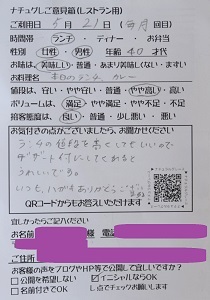 ナチュグレご意見箱(レストラン用)
ご利用日 5月 21日 (毎月 回目)
時間帯 ランチ・ディナー・お弁当
性別 女性・男性 年齢 40 才代
お味は 美味しい・普通・あまり美味しくない・まずい
お料理名 本日のランチ、カレー
値段は、安い・やや安い・普通・やや高い・高い
ボリュームは 満足・やや満足・やや不足・不足
接客態度は 良い・普通・少し悪い・悪い
お気付きの点がございましたら、お聞かせください
ランチの値段を高くしてもいいので
デザート付にしてくれると
うれしいです。
いつも、ハガキありがとうございます
QRコードからもお答えいただけます
宜しかったらご記入ください
お名前 様 電話
ご住所
お客様の声をブログやHP等で公開して宜しいですか?
□公開を希望しない ☑イニシャルならOK
□名前付きでOK し点でチェックお願いします